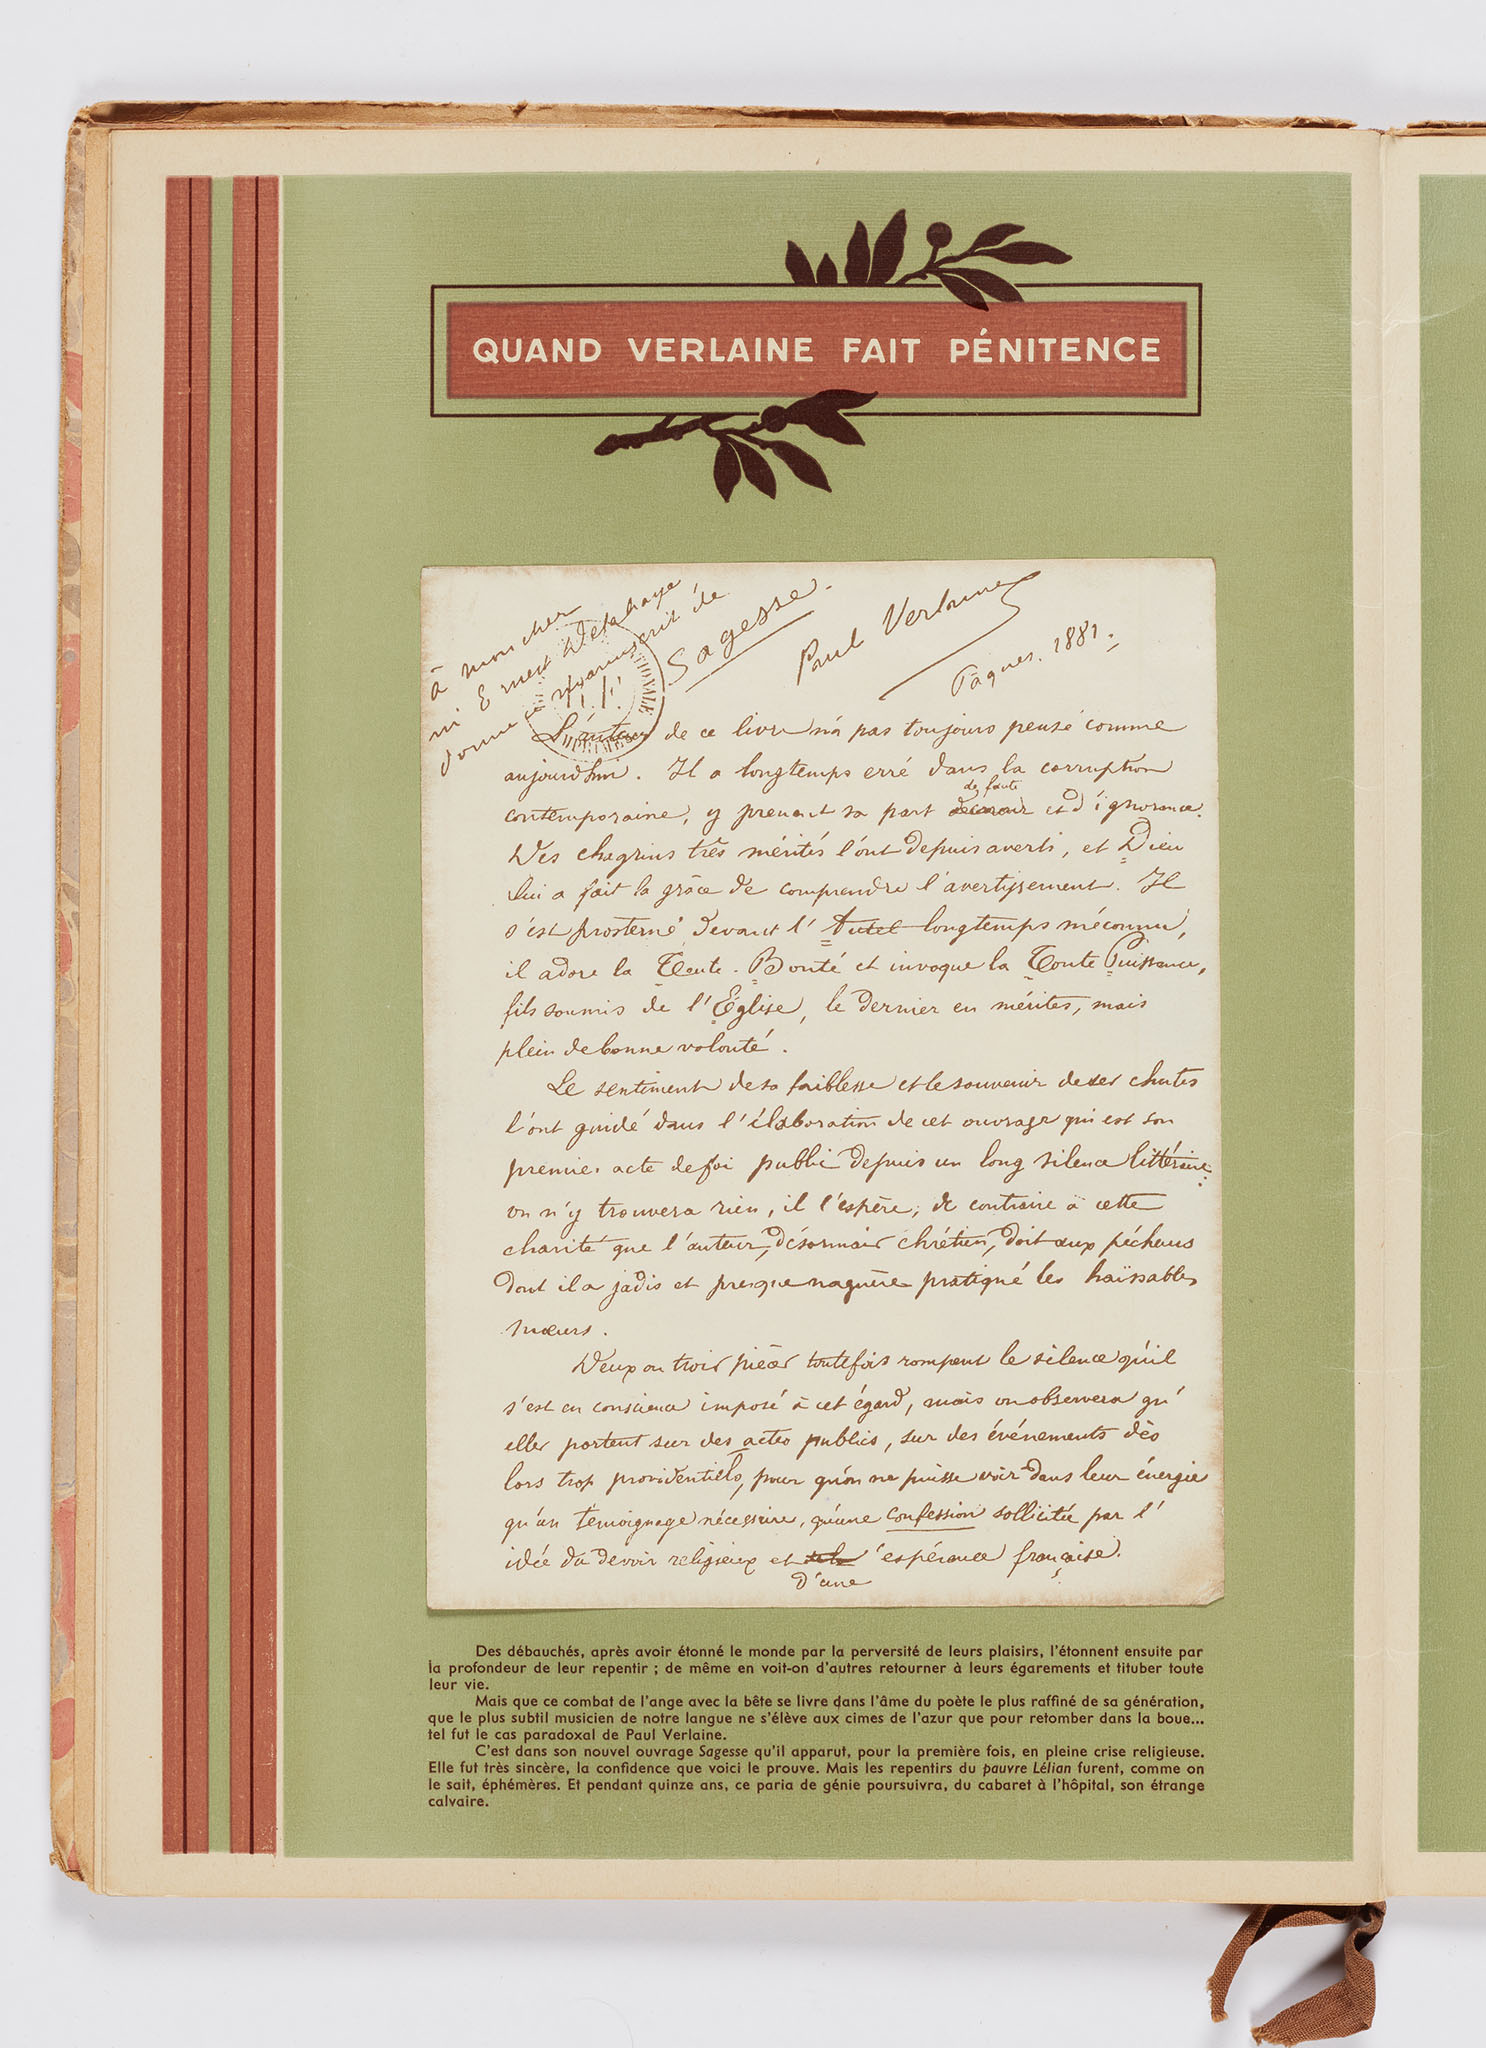 QUAND VERLAINE FAIT PÉNITENCE
à mon cher
mi Ernest Delahaye
donne ce manuscrit de
Sagesse.
Paul Verlaine
Pâques. 1881.
L'auteur de ce livre n'a pas toujours pensé comme
aujourd'hui. Il a longtemps erré dans la corruption
de faute
contemporaine, y prenant sa part et d'ignorance.
Des chagrins très mérités l'ont depuis averti, et Dieu
lui a fait la grâce de comprendre l'avertissement. Il
s'est prosterné devant l'Autel longtemps méconnu,
il adore la Toute-Bonté et invoque la Toute Puissance,
fils soumis de l'Église, le dernier en mérites, mais
plein de bonne volonté.
Le sentiment de sa faiblesse et le souvenir de ses chutes
l'ont guidé dans l'élaboration de cet ouvrage qui est son
premier acte de foi public depuis un long silence littéraire:
on n'y trouvera rien, il l'espère, de contraire à cette
charité que l'auteur, désormais chrétien, doit aux pécheurs
dont il a jadis et presque naguère pratiqué les haïssables
mœurs.
Deux ou trois pièces toutefois rompent le silence qu'il
s'est en conscience imposé à cet égard, mais on observera qu'
elles portent sur des actes publics, sur des événements dès
lors trop providentiels, pour qu'on ne puisse voir dans leur énergie
qu'un témoignage nécessaire, qu'une confession sollicitée par l'
idée du devoir religieux et espérance française.
d'une
Des débauchés, après avoir étonné le monde par la perversité de leurs plaisirs, l'étonnent ensuite par
la profondeur de leur repentir ; de même en voit-on d'autres retourner à leurs égarements et tituber toute
leur vie.
Mais que ce combat de l'ange avec la bête se livre dans l'âme du poète le plus raffiné de sa génération,
que le plus subtil musicien de notre langue ne s'élève aux cimes de l'azur que pour retomber dans la boue...
tel fut le cas paradoxal de Paul Verlaine.
C'est dans son nouvel ouvrage Sagesse qu'il apparut, pour la première fois, en pleine crise religieuse.
Elle fut très sincère, la confidence que voici le prouve. Mais les repentirs du pauvre Lélian furent, comme on
le sait, éphémères. Et pendant quinze ans, ce paria de génie poursuivra, du cabaret à l'hôpital, son étrange
calvaire.